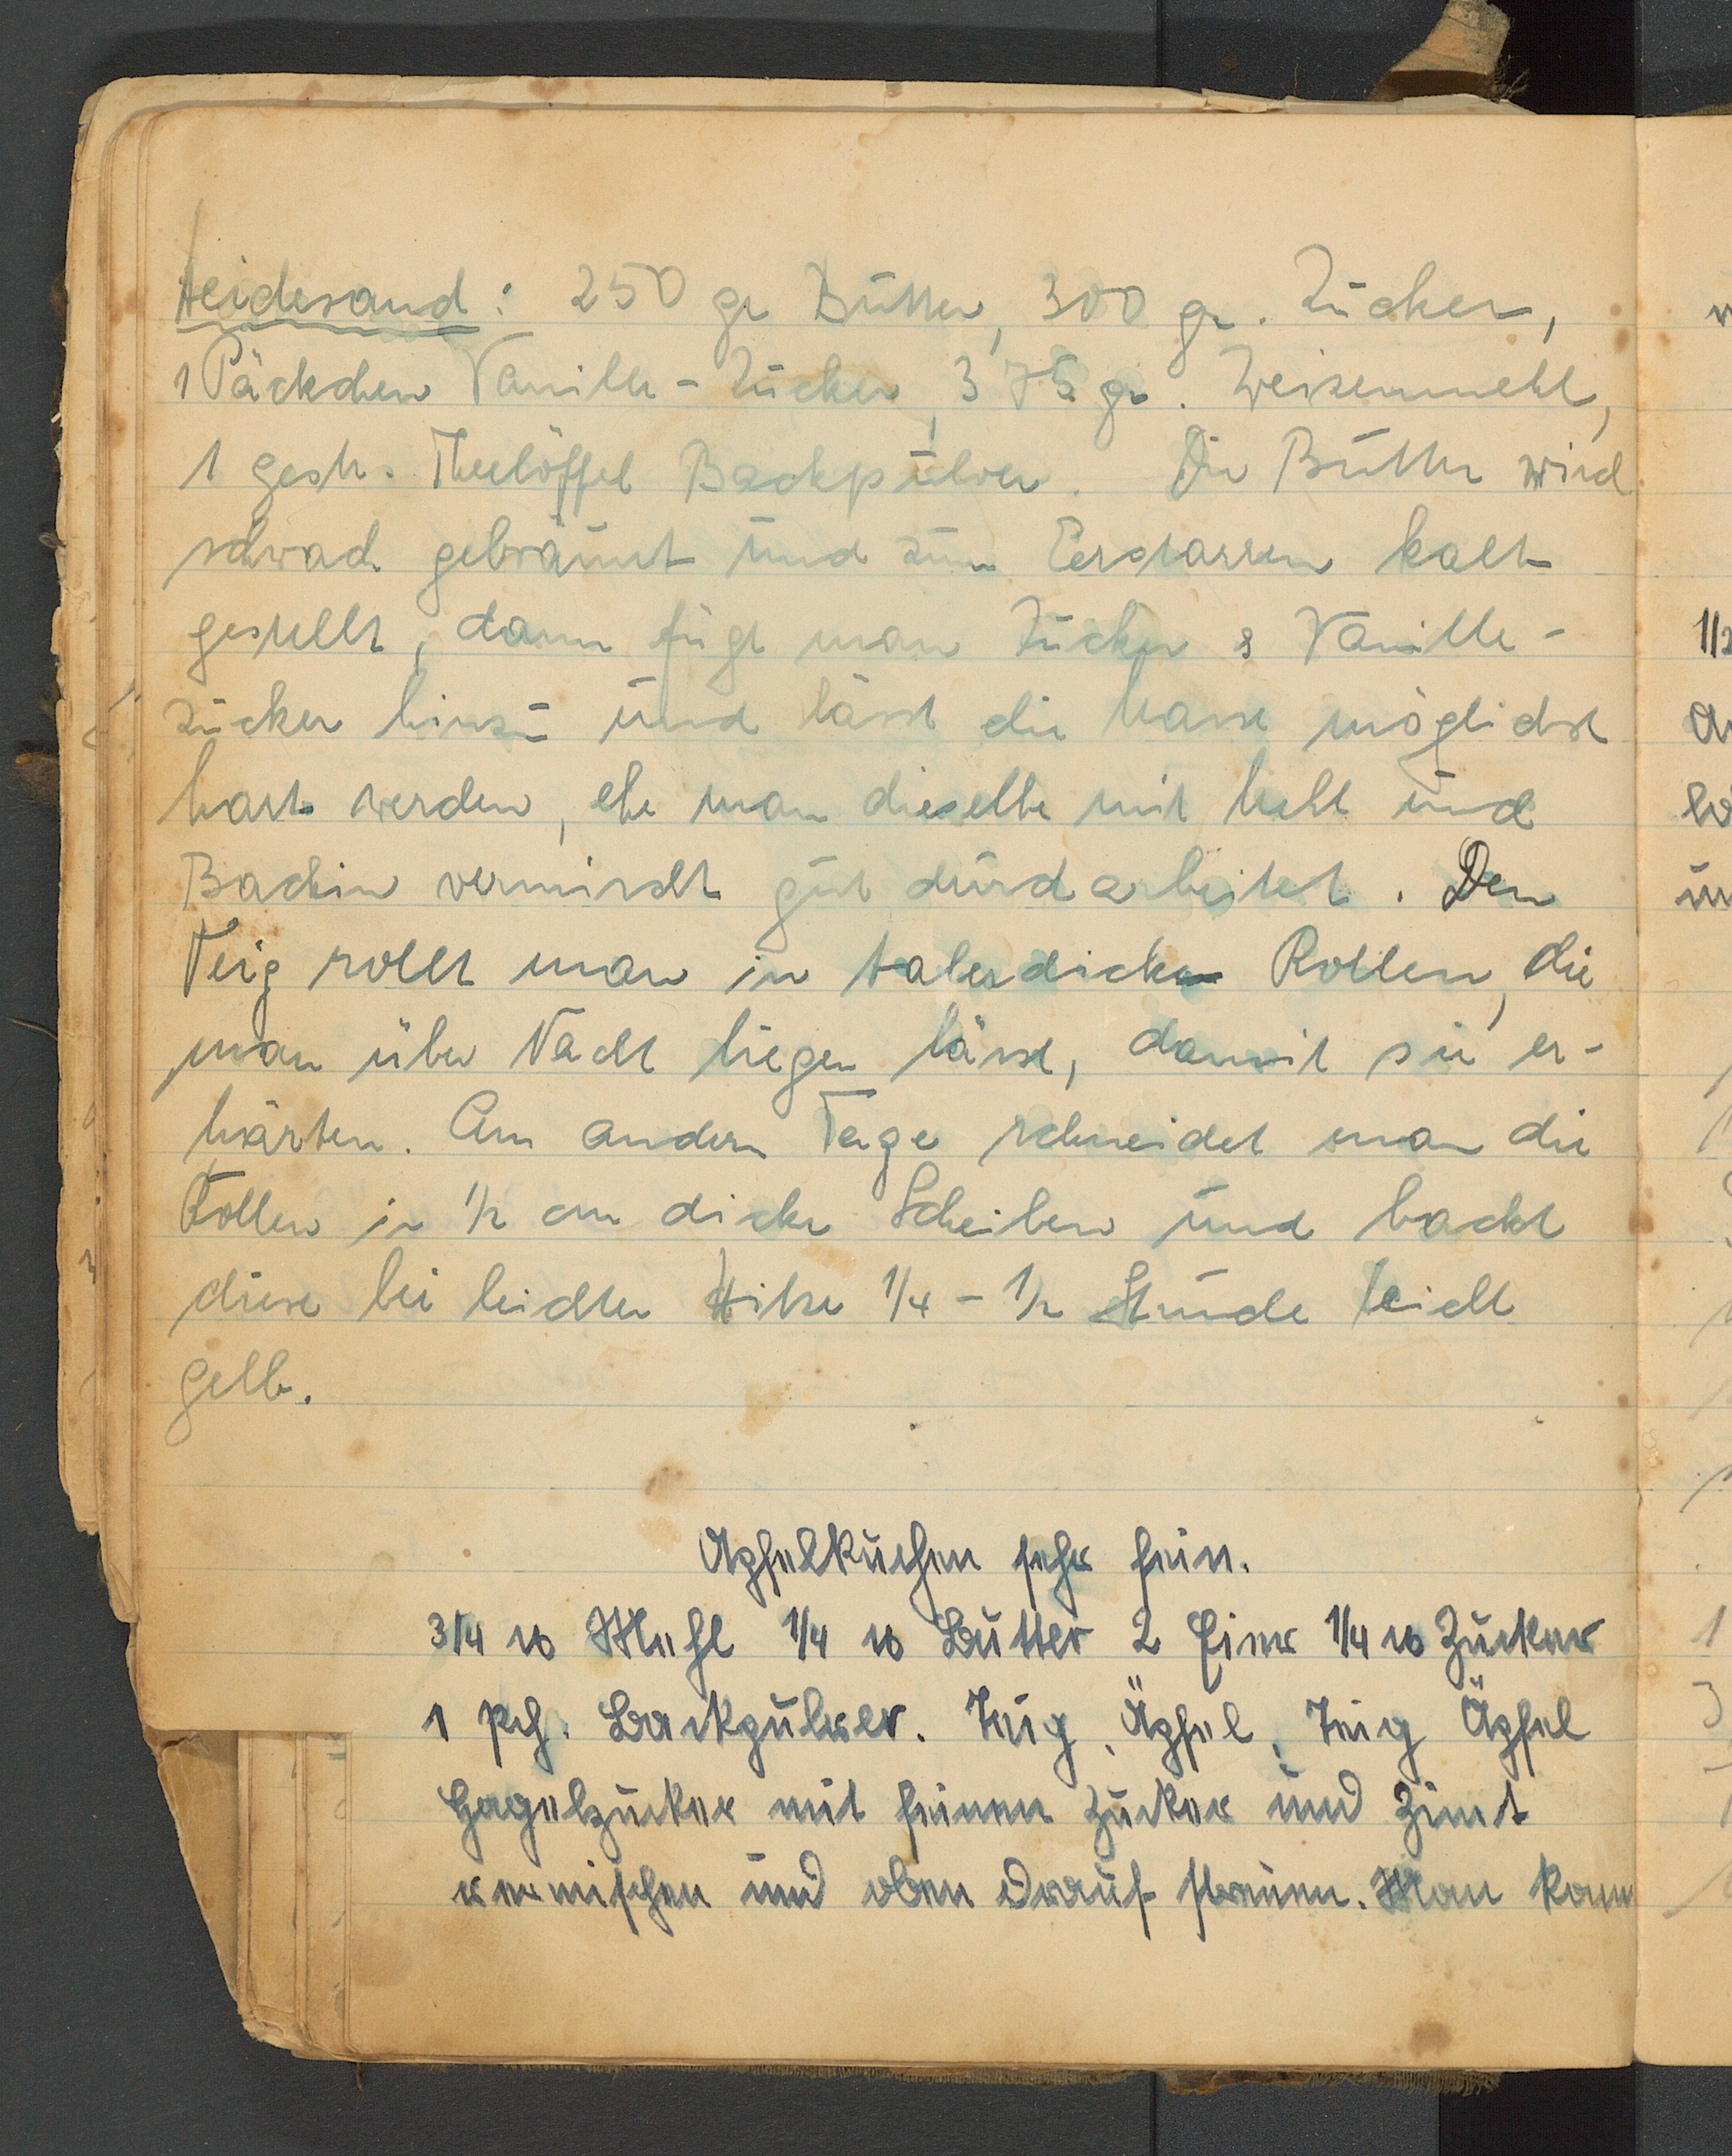 Heidesand: 250 gr Butter, 300 gr. Zucker,
1 Päckchen Vanille-Zucker, 375 gr. Weizenmehl,
1 gestr. Theelöffel Backpulver. Die Butter wird
schwach gebräunt und zum Eerstarren kalt
gestellt, dann fügt man Zucker & Vanille-
zucker hinzu und lässt die Masse möglichst
hart werden, ehe man dieselbe mit Mehl und
Backin vermischt gut durcharbeitet. Den
Teig rollt man in talerdicke Rollen, die
man über Nacht liegen lässt, damit sie er-
härten. Am andern Tage schneidet man die
Rollen in 1/2 cm dicke Scheiben und backt
diese bei leichter Hitze 1/4 - 1/2 Stunde leicht
gelb.
Apfelkuchen sehr fein.
3/4 ℔ Mehl 1/4 ℔ Butter 2 Eier 1/4 ℔ Zucker
1 Pch. Backpulver. Teig, Äpfel, Teig Äpfel
Hagelzucker mit feinen Zucker und Zimt
vermischen und oben drauf streuen. Man kann